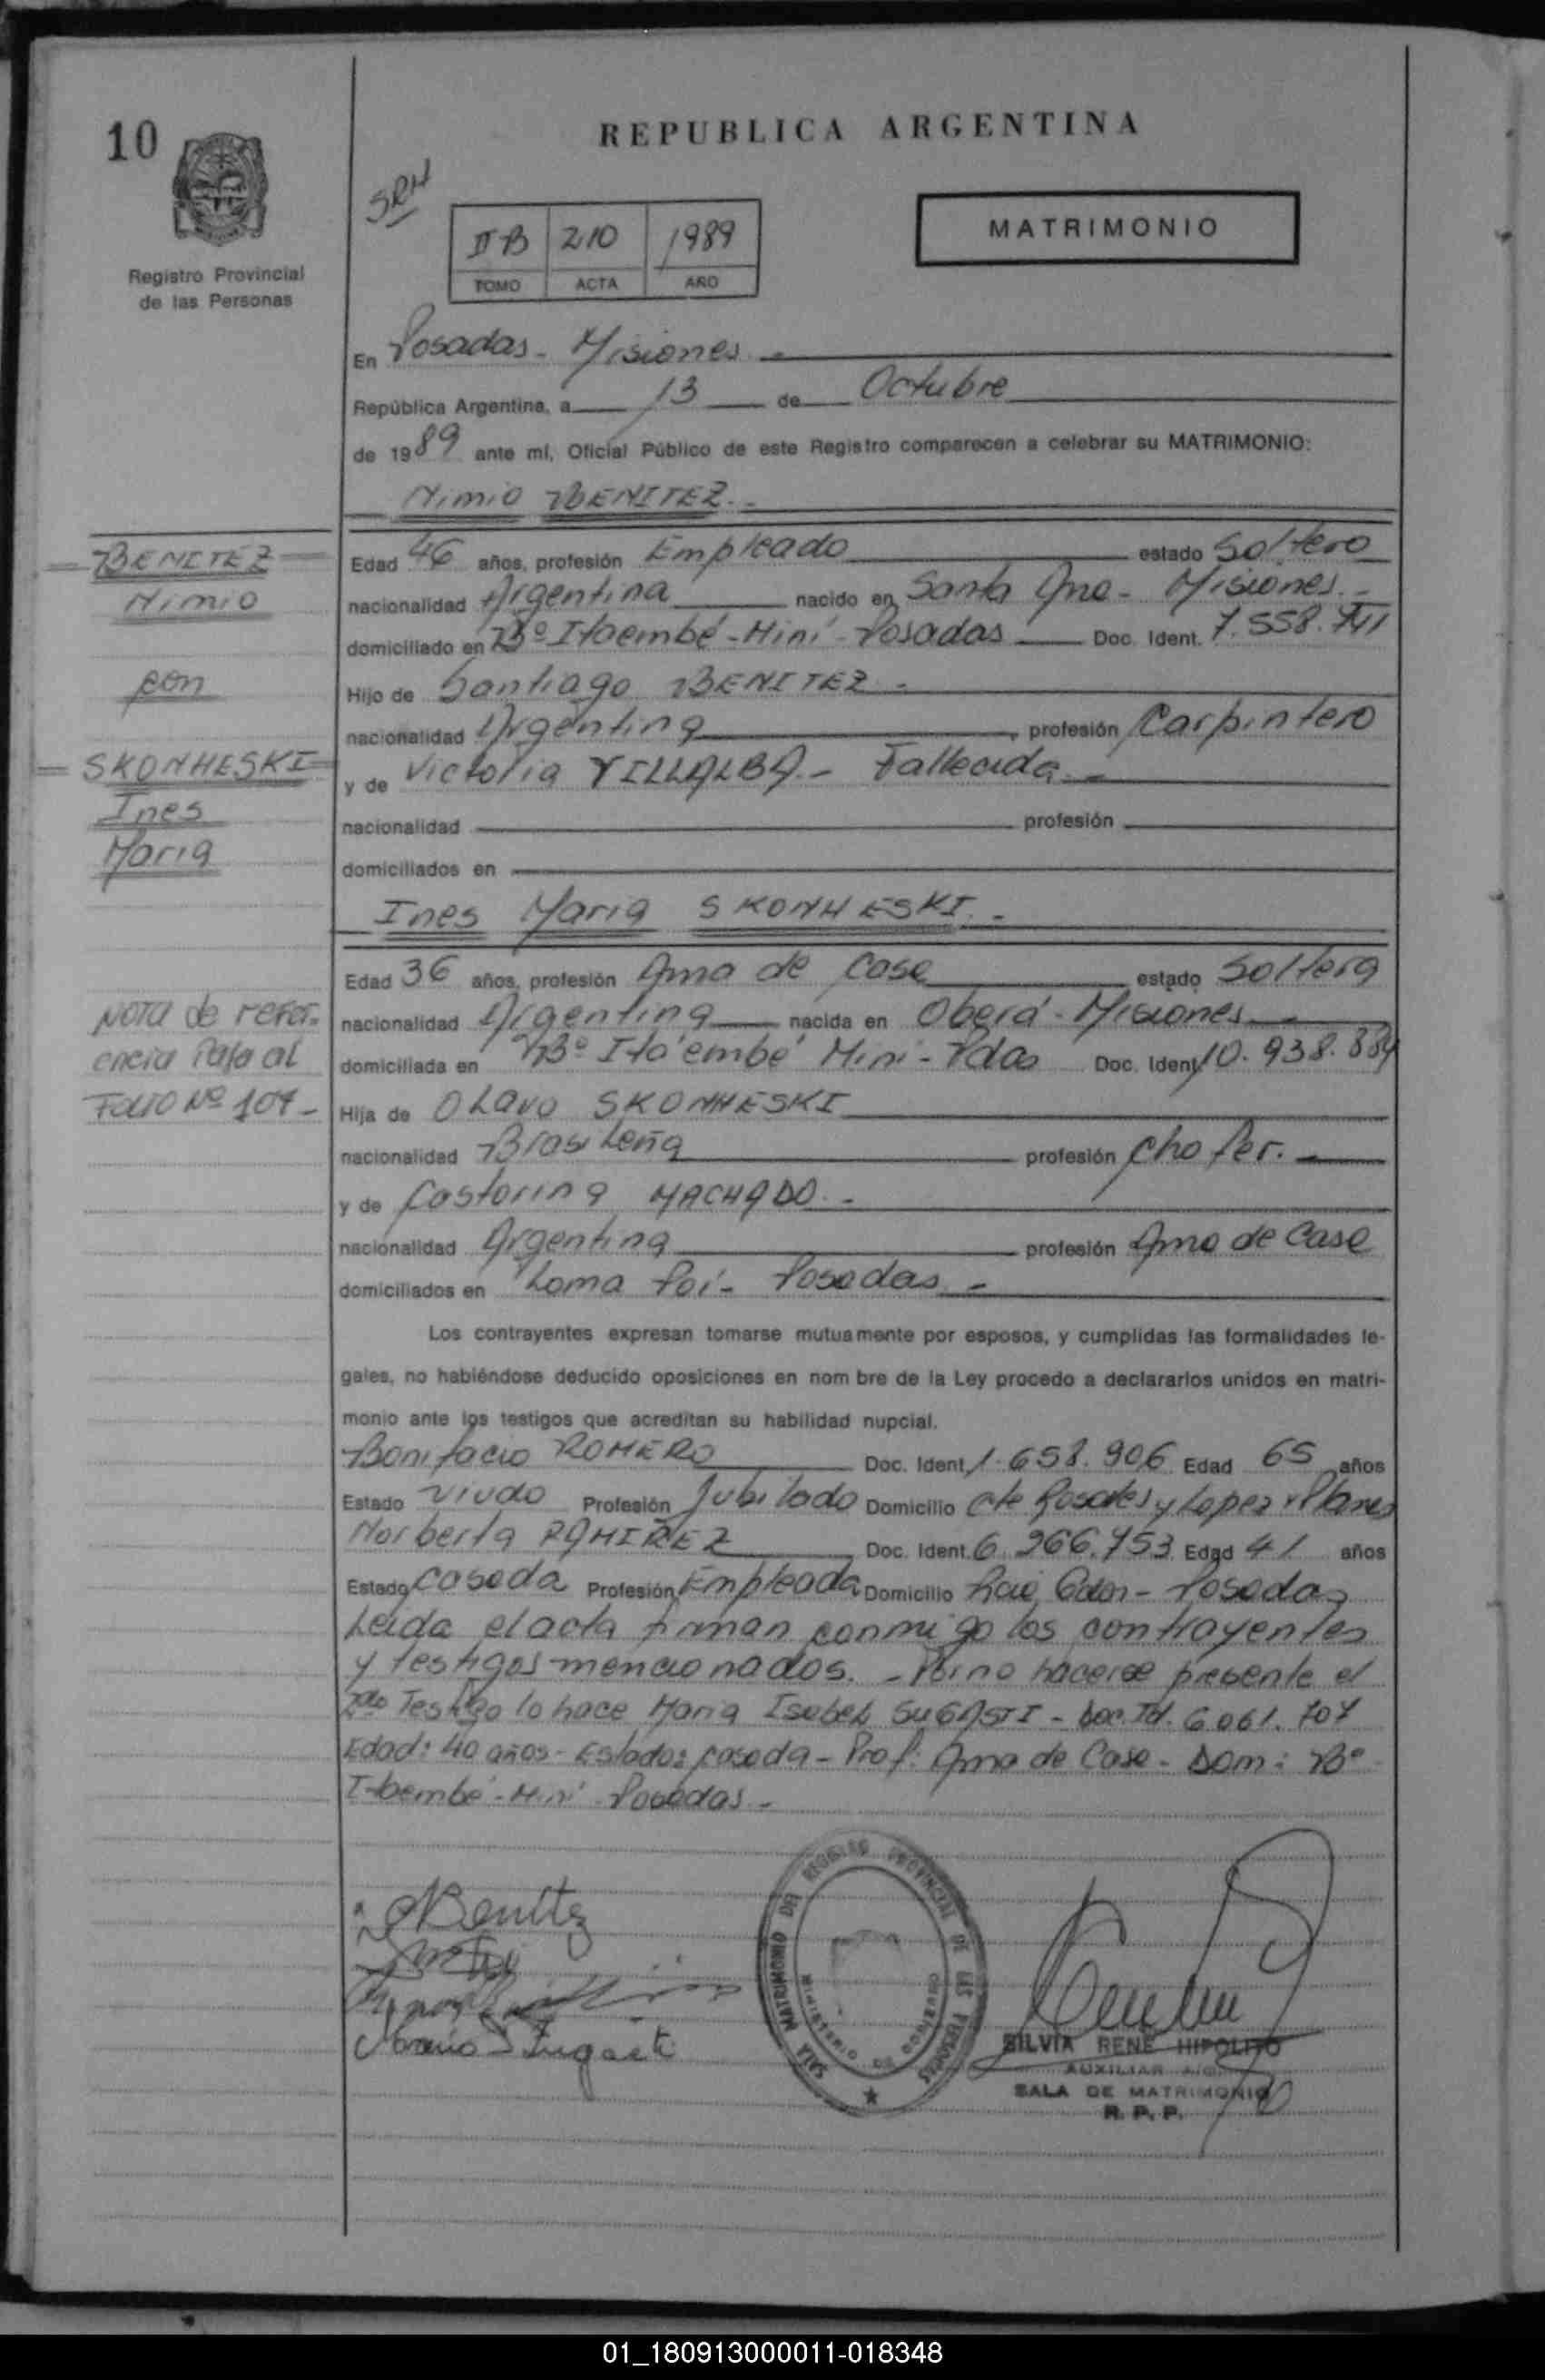 10
REPUBLICA ARGENTINA
Registro Provincial
de las Personas
SRH
II B 210 1989
TOMO ACTA AÑO
MATRIMONIO
En Posadas - Misiones -
República Argentina, a 13 de Octubre
de 1989 ante mí, Oficial Público de este Registro comparecen a celebrar su MATRIMONIO:
Nimio BENITEZ.-
BENITEZ
Nimio
con
SKONHESKI
Ines
Maria
Edad 46 años, profesión Empleado estado Soltero
nacionalidad Argentina nacido en Santa Ana - Misiones.-
domiciliado en Bº Itaembé-Miní-Posadas Doc. Ident. 7.558.741
Hijo de Santiago BENITEZ -
nacionalidad Argentina profesión Carpintero
y de Victoria VILLALBA - Fallecida -
nacionalidad profesión
domiciliados en
Ines Maria SKONHESKI.-
Edad 36 años, profesión Ama de Casa estado Soltera
nacionalidad Argentina nacida en Oberá - Misiones -
domiciliada en Bº Itaembé Mini - Pdas Doc. Ident. 10.938.884
Nota de refer-
encia Pasa al
Folio Nº 107-
Hija de Olavo SKONHESKI
nacionalidad Brasileña profesión Chofer.-
y de Castorina MACHADO.-
nacionalidad Argentina profesión Ama de Casa
domiciliados en Loma Poí - Posadas -
Los contrayentes expresan tomarse mutuamente por esposos, y cumplidas las formalidades le-
gales, no habiéndose deducido oposiciones en nom bre de la Ley procedo a declararlos unidos en matri-
monio ante los testigos que acreditan su habilidad nupcial.
Bonifacio ROMERO Doc. Ident. 1.658.906 Edad 65 años
Estado Viudo Profesión Jubilado Domicilio Cte Rosales y Lopez y Planes
Norberta RAMIREZ Doc. Ident. 6.266.753 Edad 41 años
Estado Casada Profesión Empleada Domicilio Posadas
Leida el acta firman conmigo los contrayentes
y testigos mencionados. - Por no hacerse presente el
2do Testigo lo hace Maria Isabel SUGASTI - Doc. Id. 6.061.707
Edad: 40 años - Estado: casada - Prof: Ama de Casa - Dom: Bº
Itaembé-Mini-Posadas -
Benitez
SALA MATRIMONIO DEL REGISTRO PROVINCIAL DE LAS PERSONAS
MINISTERIO DE GOBIERNO
SILVIA RENE HIPOLITO
AUXILIAR
SALA DE MATRIMONIO
R. P. P.
01_180913000011-018348